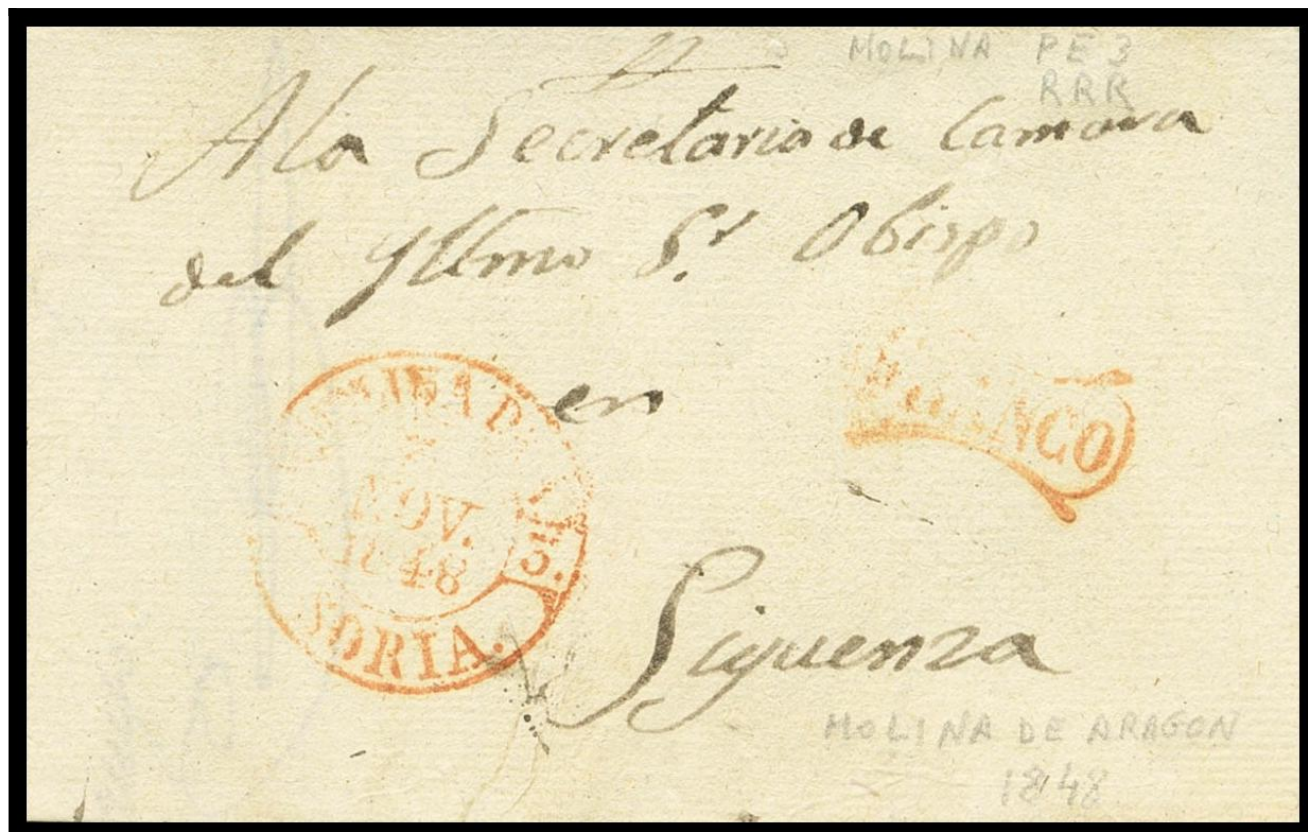 MOLINA PE 3
RRR
A la Secretaria de Camara
del Yllmo Sr. Obispo
en
FRANCO
NOV.
1848
SORIA.
Siguenza
MOLINA DE ARAGON
1848